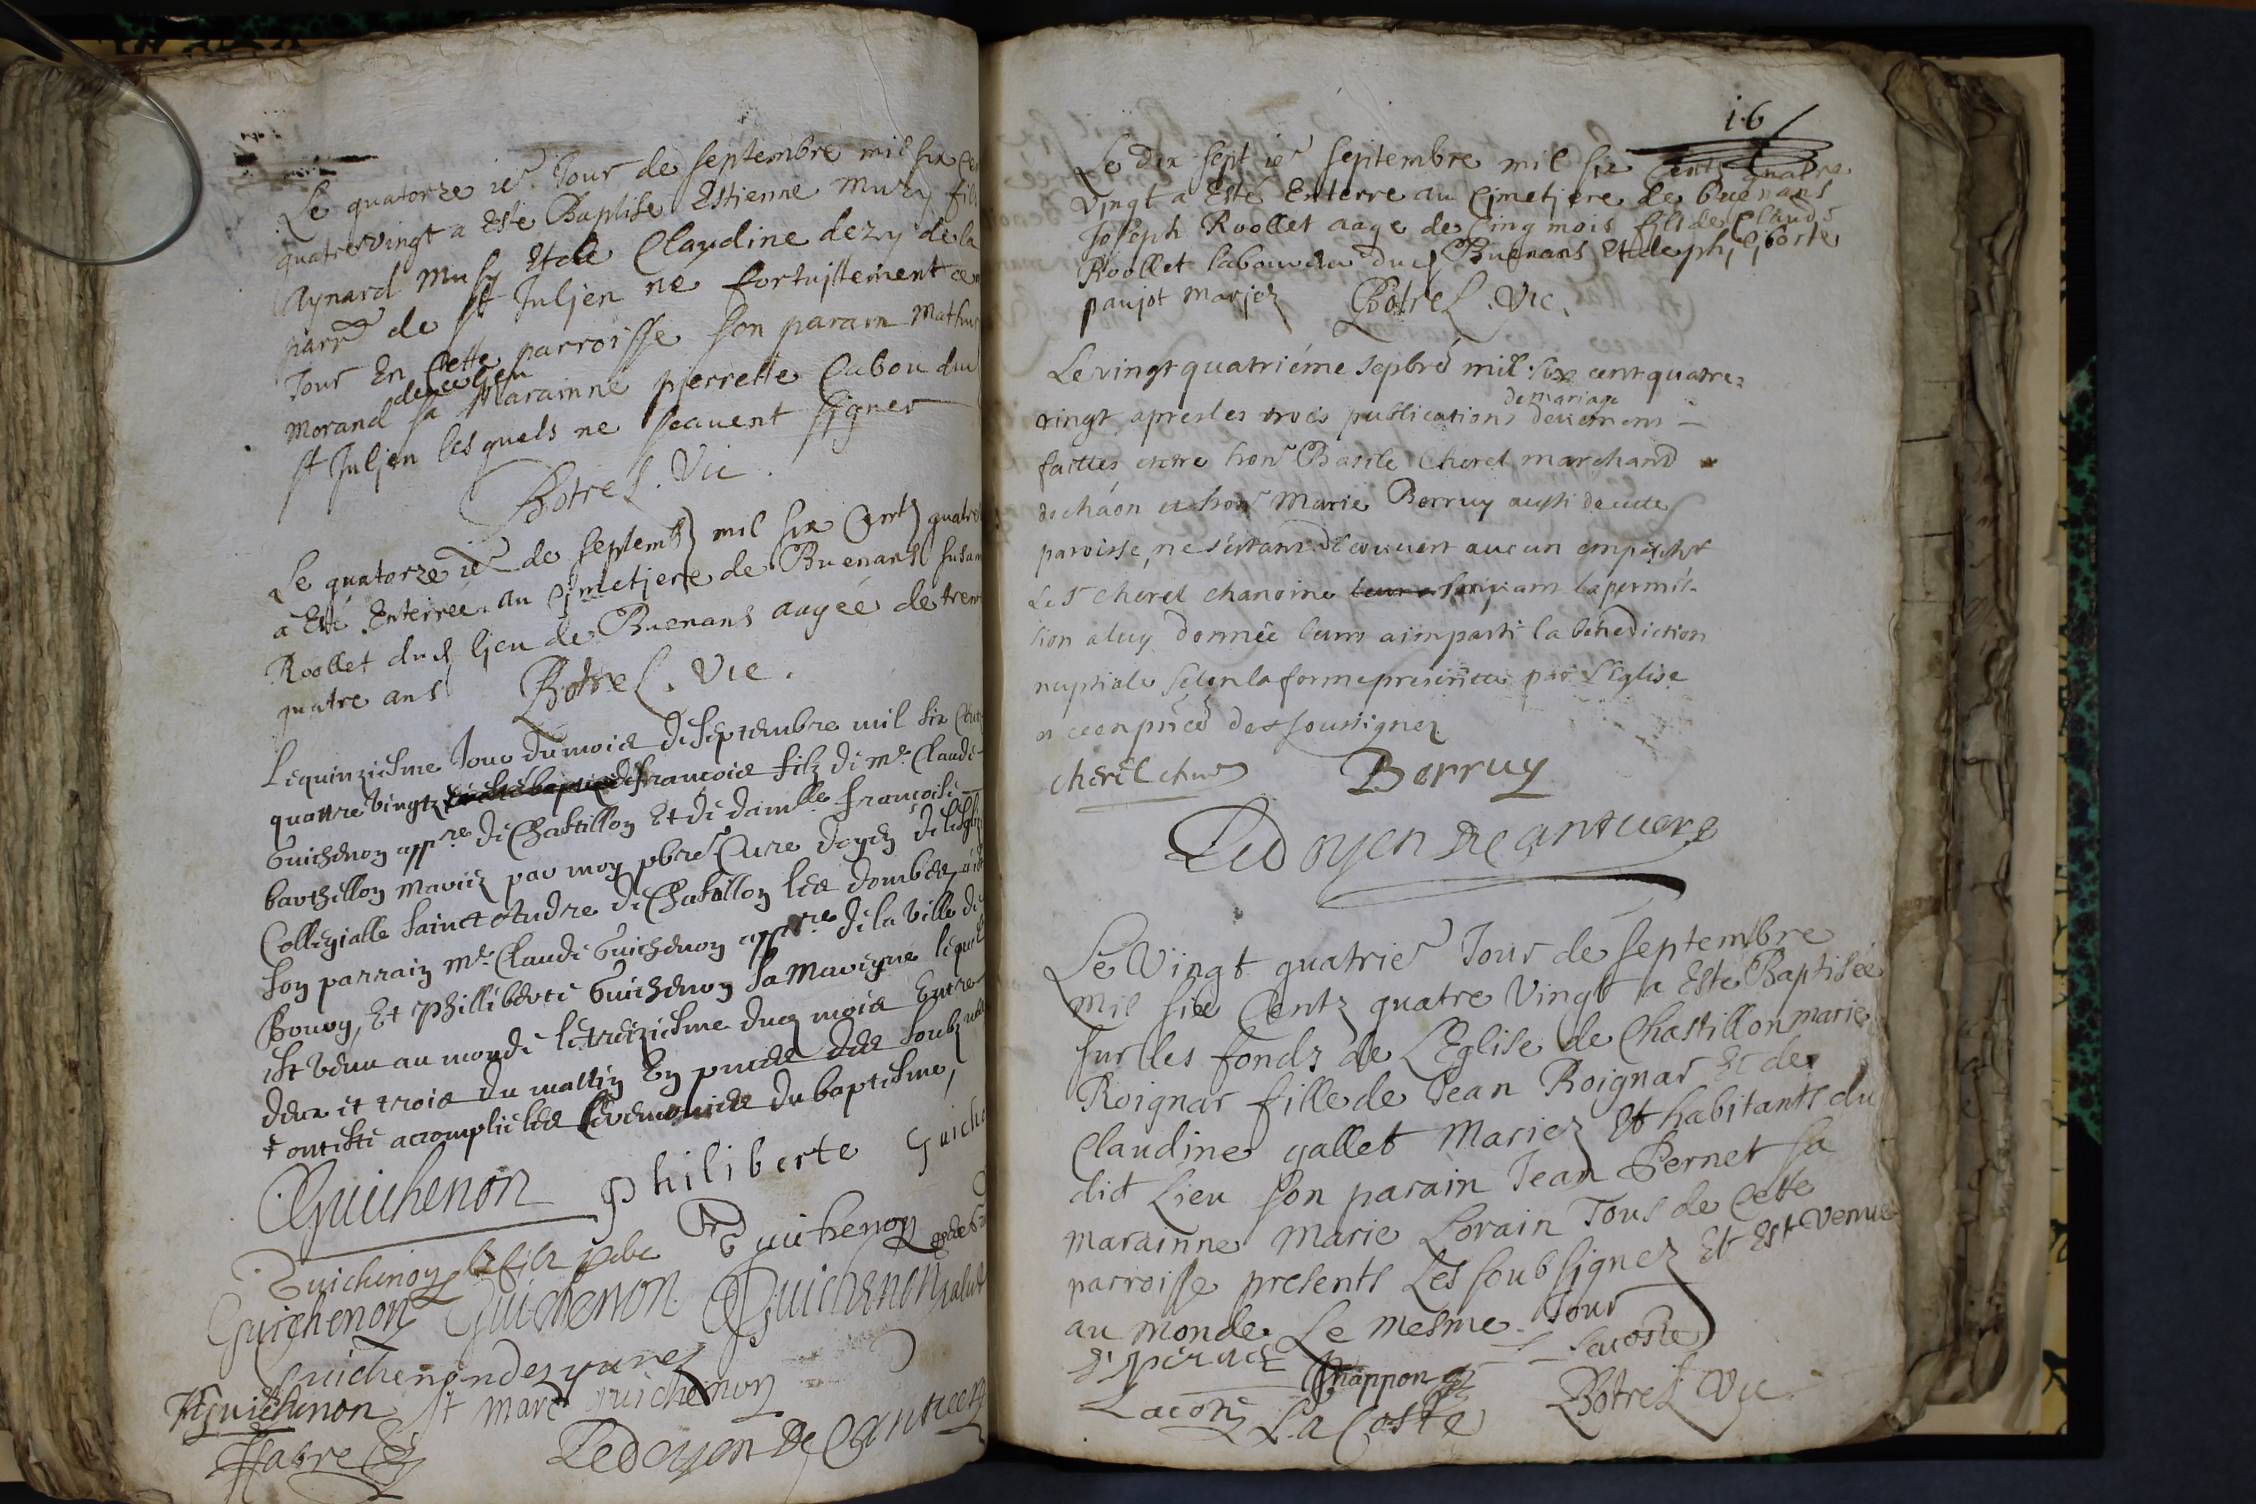 Le quatorze ie Jour de septembre mil six Cen
quatrevingt a Esté Baptise Estienne Musy fils
Aynard Musy Et de Claudine dezy de la
parr de st Juljen né fortuittement ce
Jour En Cette parroisse son parain Mathu
de ce ljeu
morand sa Marainne pjerrette Cabou du
st Juljen lesquels ne scauent signer
Botrel. Vic.
Le quatorze ie de septemb mil six Centz quatre
a Esté Enterrée au Cjmetjere de Buenans susan
Roollet dud ljeu de Buenans aagée de tren
quatre ans Botrel. Vic.
Lequinziesme Jour du mois de septembre mil six Cent
quattre vingtz francois filz de me Claude
Guichenon appre de Chastillon Et de damlle françoise
barthellon mariez par moy pbre Cure doyen de leglis
Collegialle sainct Andre de Chastillon les dombes,
son parrain me Claude Guichenon appre de la Ville de
Bourg, Et Phillibertе Guichenon sa Mareyne lequel
est venu au monde le treiziesme dud mois Entre
deux et trois du mattin En pnce des soubz
ont esté accomplie les Ceremonies du baptesme,
CGuichenon Philiberte Guiche
Guichenon le filz Guichenon
Guichenon Guichenon Guichenon
Guichenon
Guichenon st marc Guichenon
fabre Ledoyen De Cantuers
16
Le dix sept ie septembre mil six Centz quatre
Vingt a Esté Enterre au Cjmetjere de buenans
Joseph Roollet aage de Cinq mois fils de Claude
Roollet laboureur dud Buenans Et de phjljberte
paujot marjez Botrel. Vic.
Le vingt quatriéme sepbre mil six cent quatre
de mariage
vingt apres les trois publications deuemens
faittes entre hon Basile Cheret marchand
de chaon et hon Marie Berruy aussi de cette
paroisse, ne s'estant decouuert aucun empeschet
Le Sr Cheret chanoine suiuant la permis
sion a luy donnée leurs a imparti la benediction
nuptiale selon la forme prescritte par l'Eglise
et ce en pnce des soussignez
Cheret chne Berruy
Ledoyen De Cantuers
Le Vingt quatrie Jour de septembre
mil six Centz quatre Vingt a Esté Baptisée
sur les fondz de L'Eglise de Chastillon marie
Roignar fille de Jean Roignar Et de
Claudine gallet Mariez Et habitants du
dict Lieu son parain Jean Pernet sa
marainne Marie Lorain Tous de Cette
parroisse presents Les soub signez Et Est Venue
au monde Le mesme Jour
Lacoste
Chappon
La Coste Botrel Vic